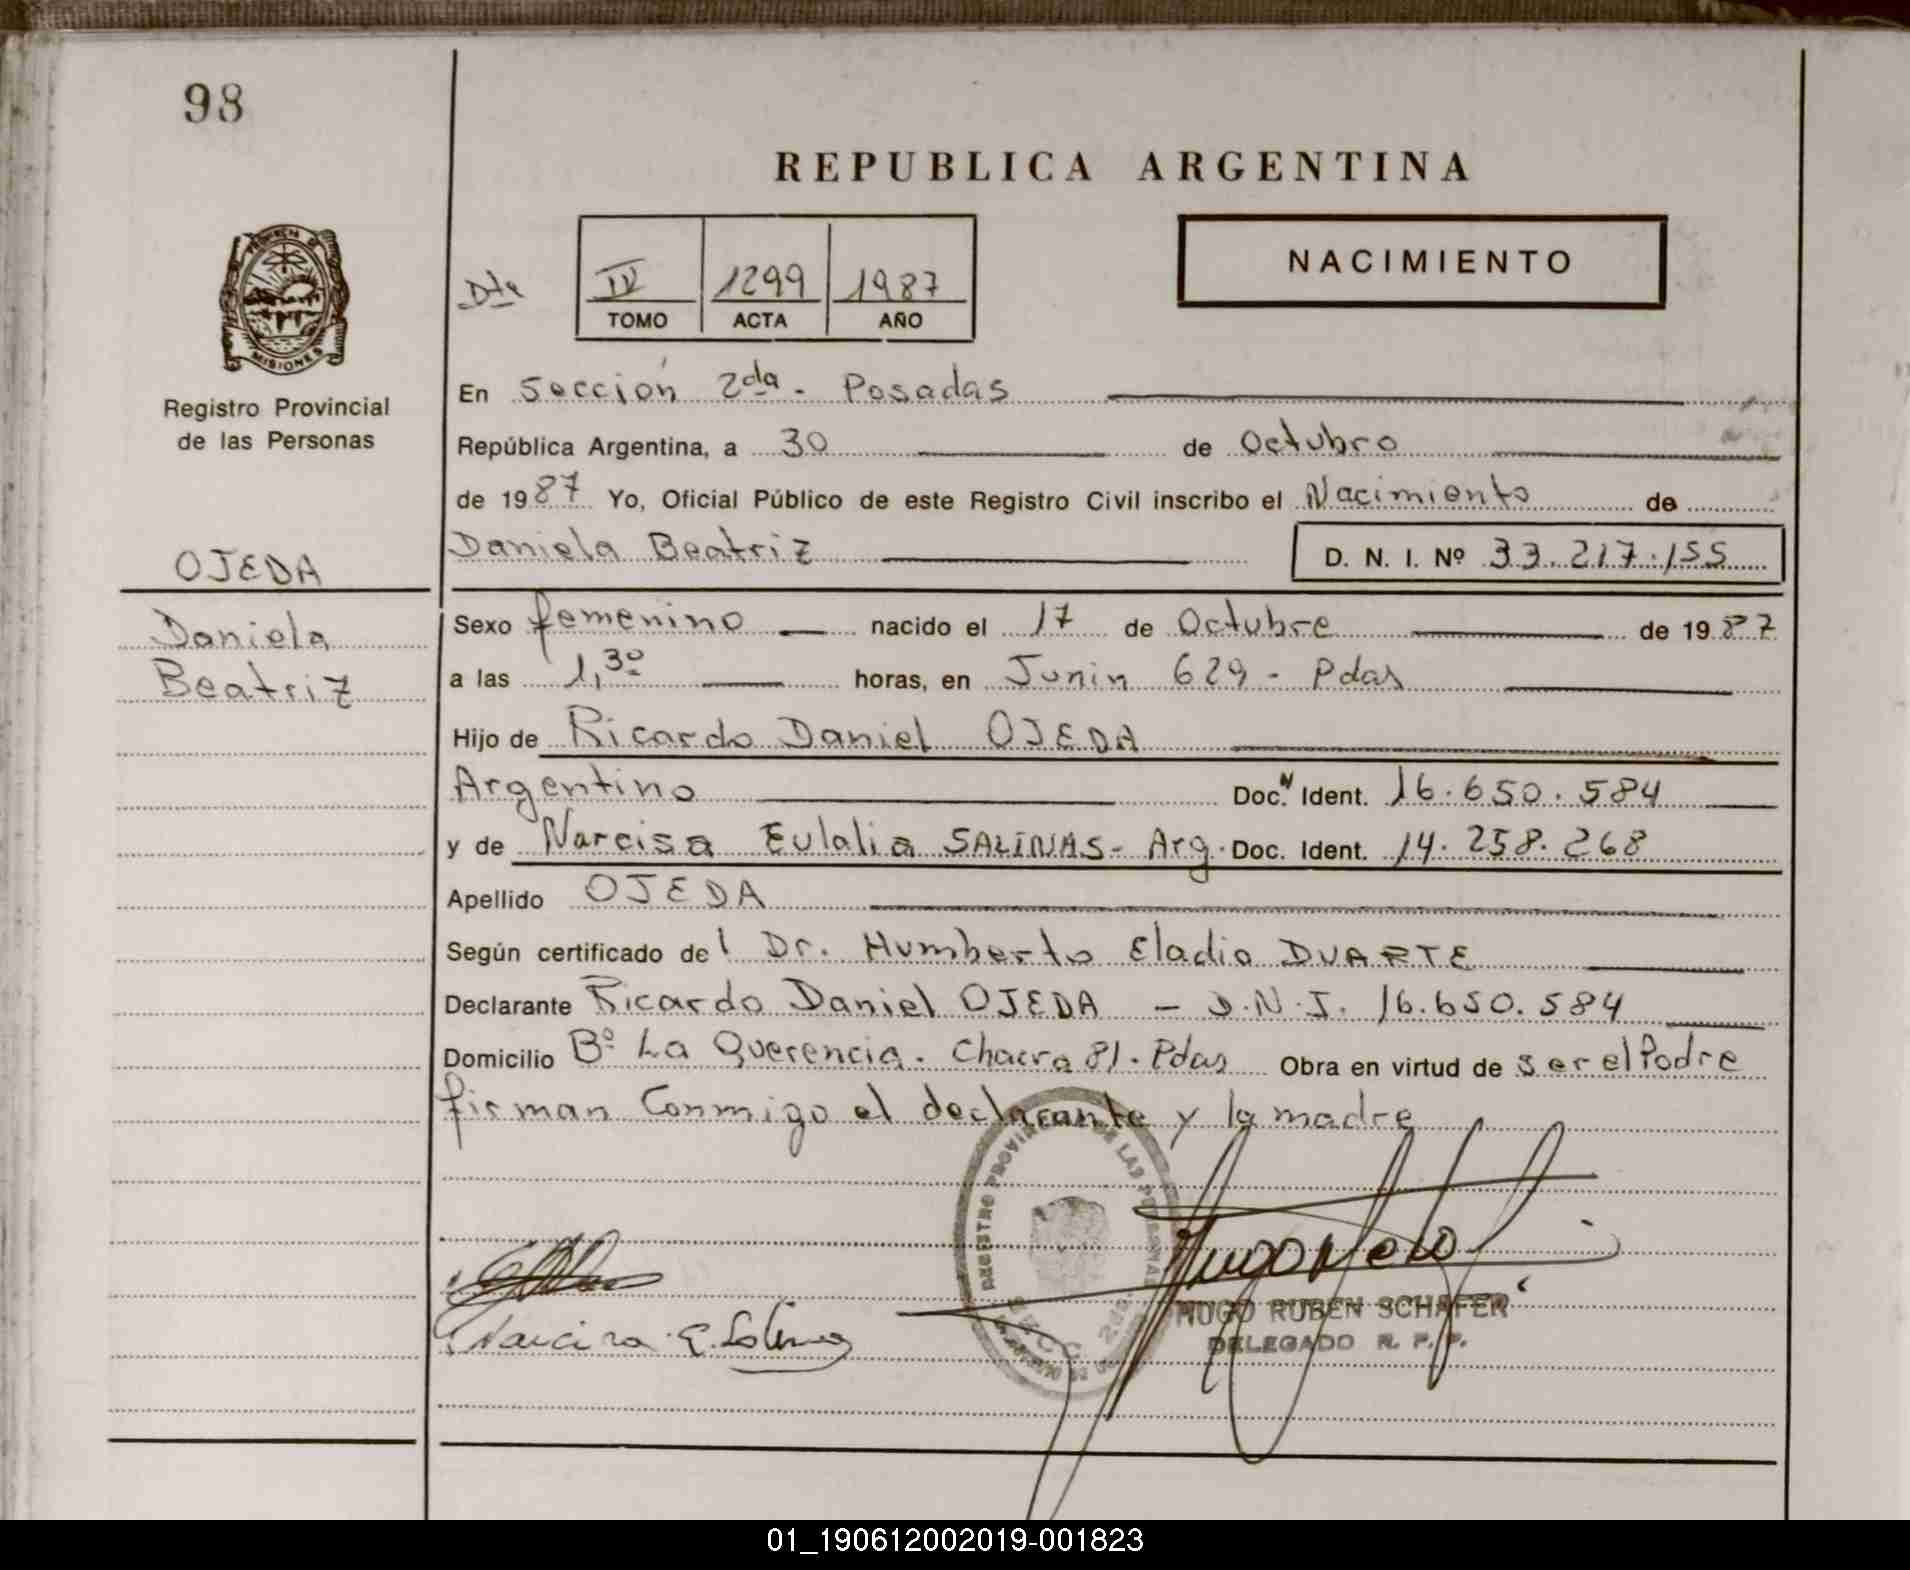 98
REPUBLICA ARGENTINA
PROVINCIA D
MISIONES
Registro Provincial
de las Personas
Dta
IV 1299 1987
TOMO ACTA AÑO
NACIMIENTO
En Sección 2da - Posadas
República Argentina, a 30 de Octubre
de 1987 Yo, Oficial Público de este Registro Civil inscribo el Nacimiento de
Daniela Beatriz D. N. I. Nº 33.217.155
OJEDA
Daniela
Beatriz
Sexo femenino nacido el 17 de Octubre de 1987
a las 1,30 horas, en Junin 629 - Pdas
Hijo de Ricardo Daniel OJEDA
Argentino Doc. Ident. 16.650.584
y de Narcisa Eulalia SALINAS - Arg. Doc. Ident. 14.258.268
Apellido OJEDA
Según certificado del Dr. Humberto Eladio DUARTE
Declarante Ricardo Daniel OJEDA - D.N.I. 16.650.584
Domicilio Bº La Querencia. Chacra 81. Pdas Obra en virtud de ser el Padre
firman Conmigo el declarante y la madre
REGISTRO PROVINCIAL DE LAS PERSONAS
SECC 2da.
HUGO RUBEN SCHAFER
DELEGADO R. P. P.
01_190612002019-001823